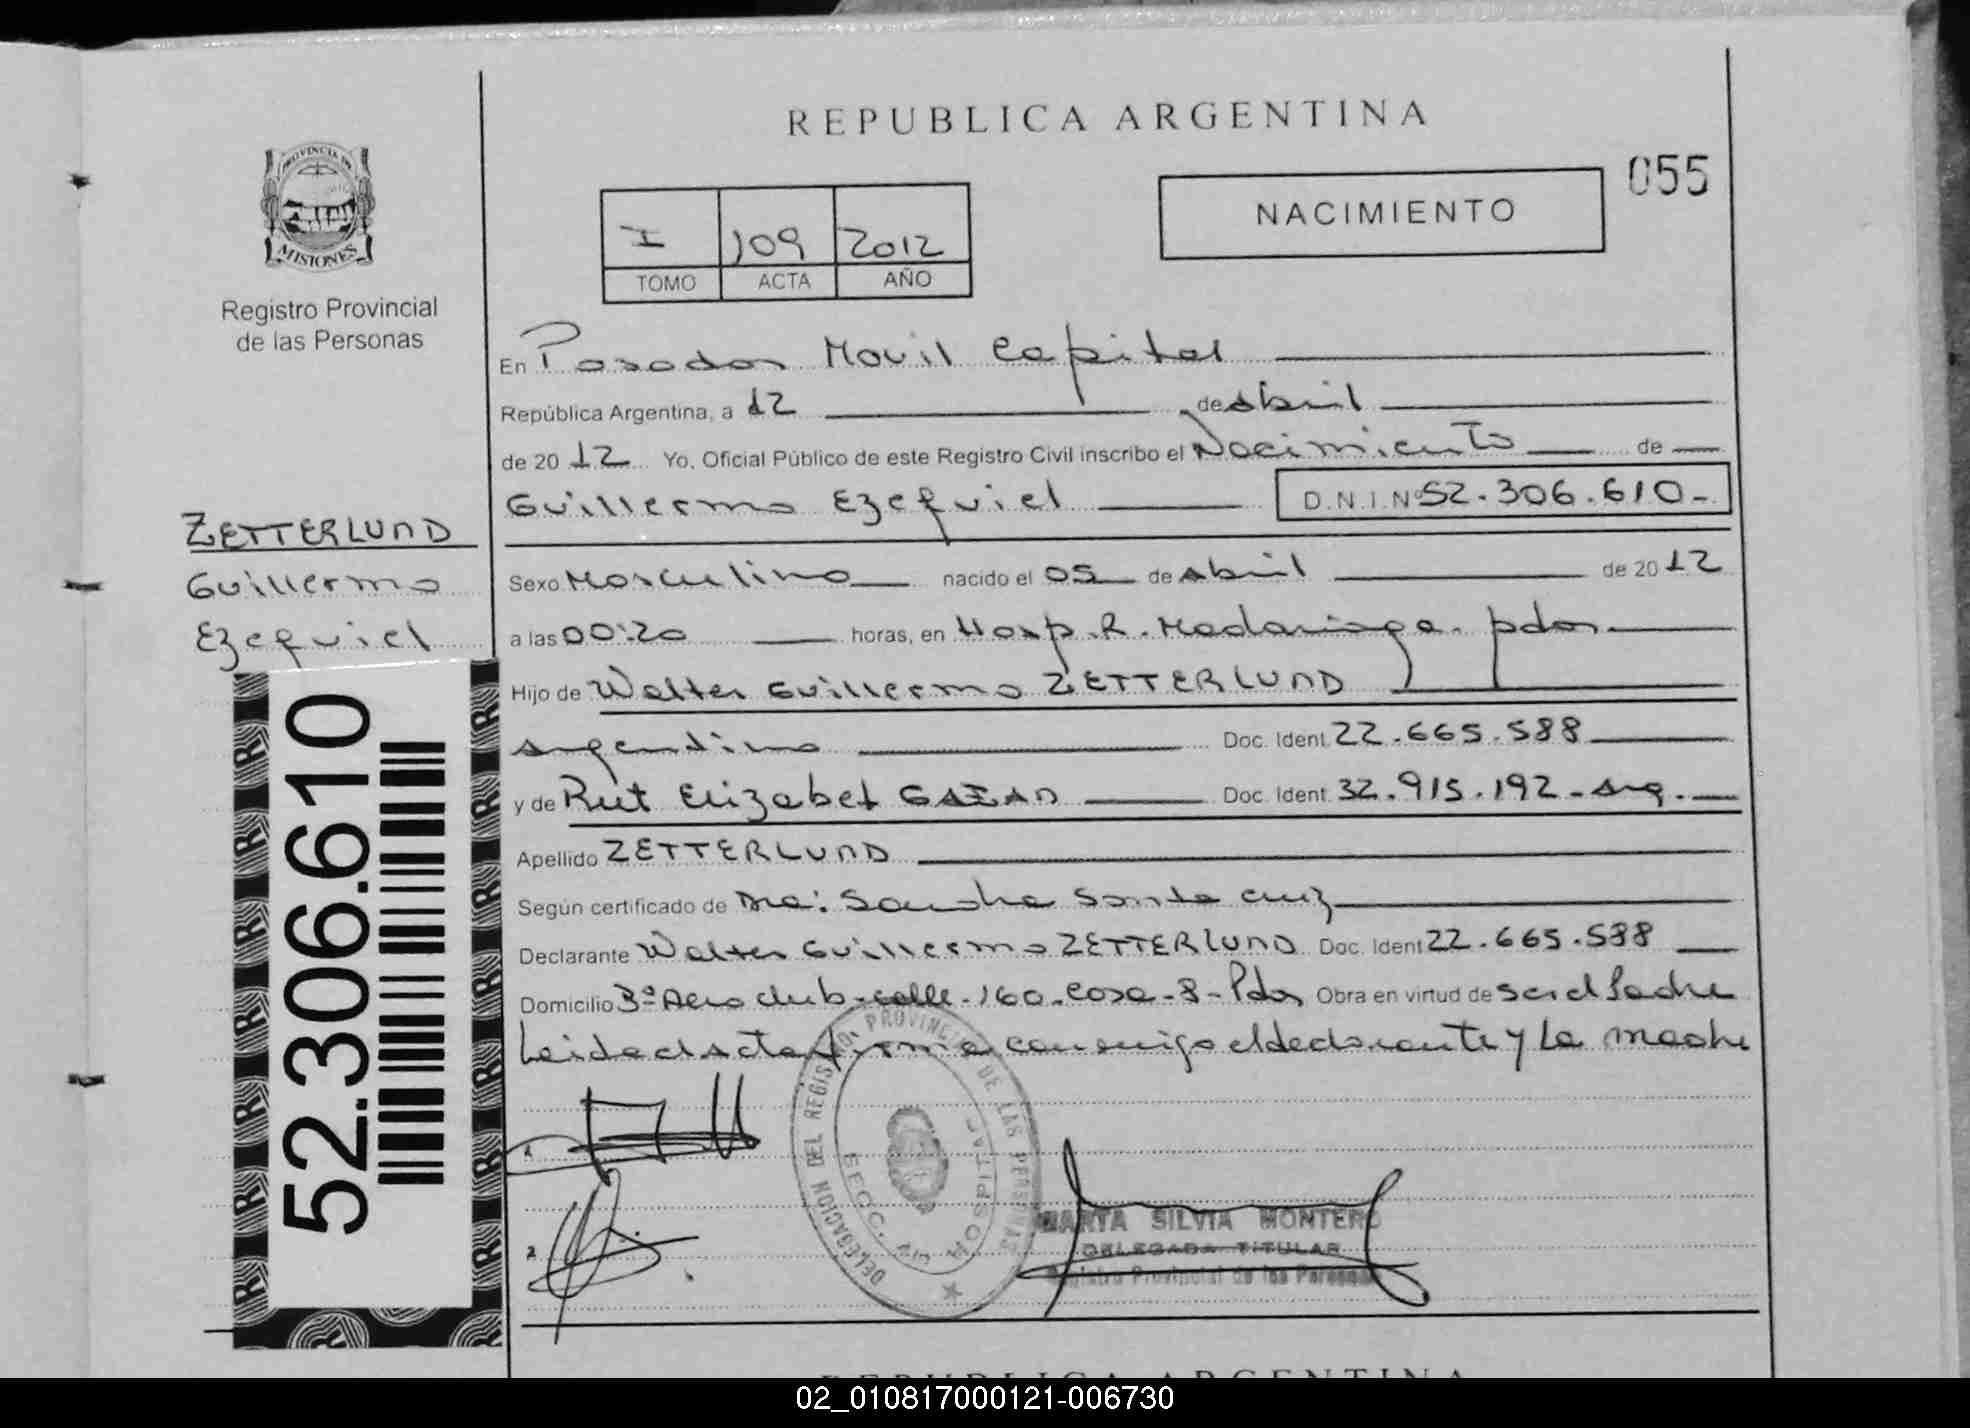 REPUBLICA ARGENTINA
055
NACIMIENTO
I 109 2012
TOMO ACTA AÑO
PROVINCIA DE
MISIONES
Registro Provincial
de las Personas
En Posadas Movil Capital
República Argentina, a 12 de Abril
de 2012 Yo, Oficial Público de este Registro Civil inscribo el Nacimiento de
Guillermo Ezequiel D.N.I.Nº 52.306.610-
ZETTERLUND
Guillermo
Ezequiel
Sexo Masculino nacido el 05 de Abril de 2012
a las 00:20 horas, en Hosp. R. Madariaga. pdas.
Hijo de Walter Guillermo ZETTERLUND
Argentino Doc. Ident. 22.665.588
y de Rut Elizabet Doc. Ident. 32.915.192 - Arg.
Apellido ZETTERLUND
Según certificado de Sandra Santa Cruz
Declarante Walter Guillermo ZETTERLUND Doc. Ident 22.665.588
Domicilio 3ª Aero club - calle - 160 - Casa - 8 - Pdas Obra en virtud de ser el Padre
Leida el Acta firma conmigo el declarante y La madre
1
2
DELEGACION DEL REGISTRO PROVINCIAL DE LAS PERSONAS
SECC. HOSPITAL
MARTA SILVIA MONTERO
DELEGADA TITULAR
Registro Provincial de las Personas
52.306.610
REPUBLICA ARGENTINA
02_010817000121-006730